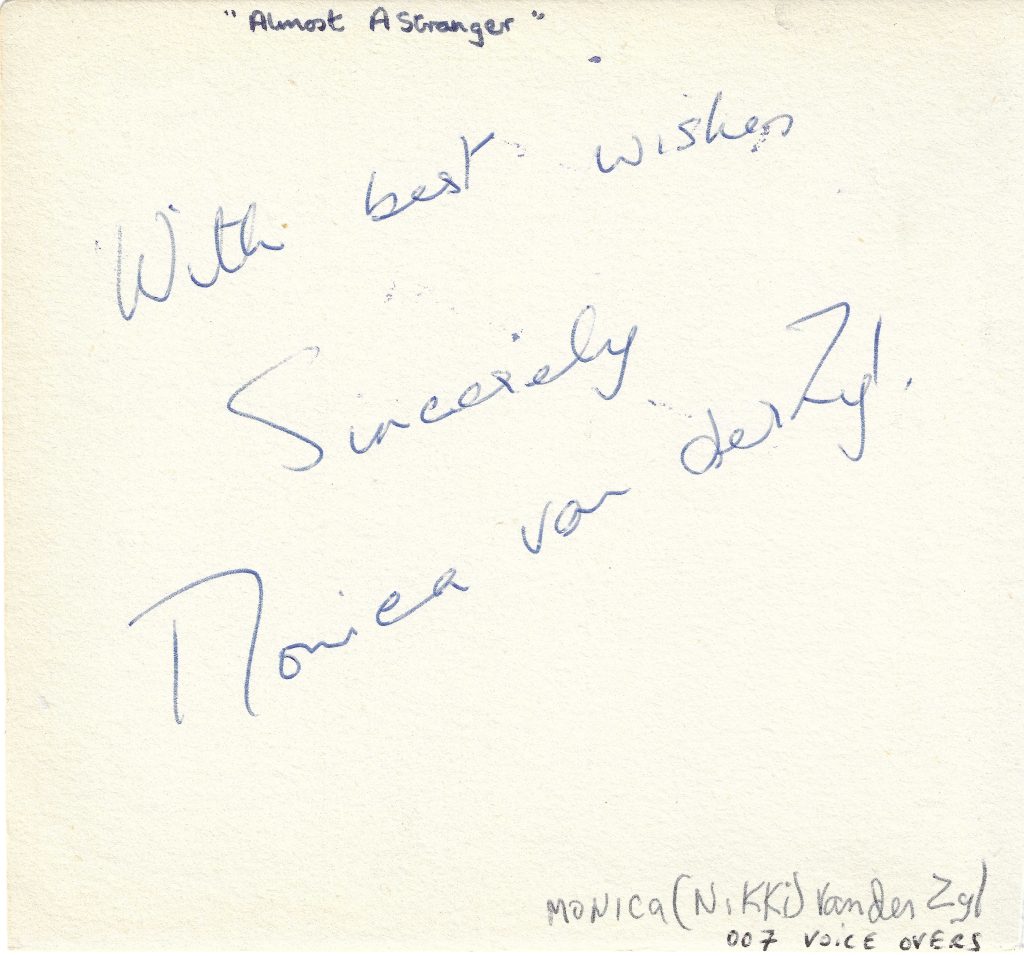 "Almost A Stranger"
With best wishes
Sincerely
Monica van der Zyl.
MONICA (NIKKI) van Der Zyl
007 VOICE OVERS